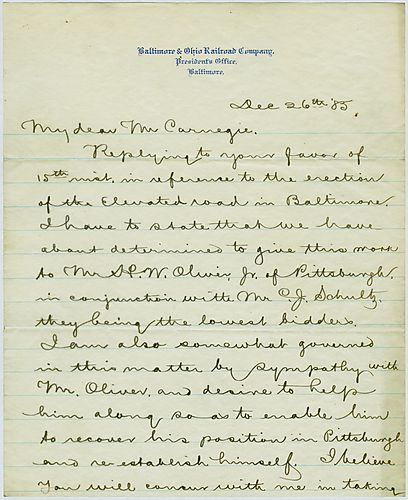 Baltimore & Ohio Railroad Company,
President's Office,
Baltimore,
Dec 26th '85,
My dear Mr Carnegie.
Replying to your favor of
15th inst. in reference to the erection
of the Elevated road in Baltimore,
I have to state that we have
about determined to give this work
to Mr H. W. Oliver, Jr. of Pittsburgh,
in conjunction with Mr C. J. Schultz,
they being the lowest bidders.
I am also somewhat governed
in this matter by sympathy with
Mr. Oliver, and desire to help
him along so as to enable him
to recover his position in Pittsburgh
and re-establish himself. I believe
you will concur with me in taking